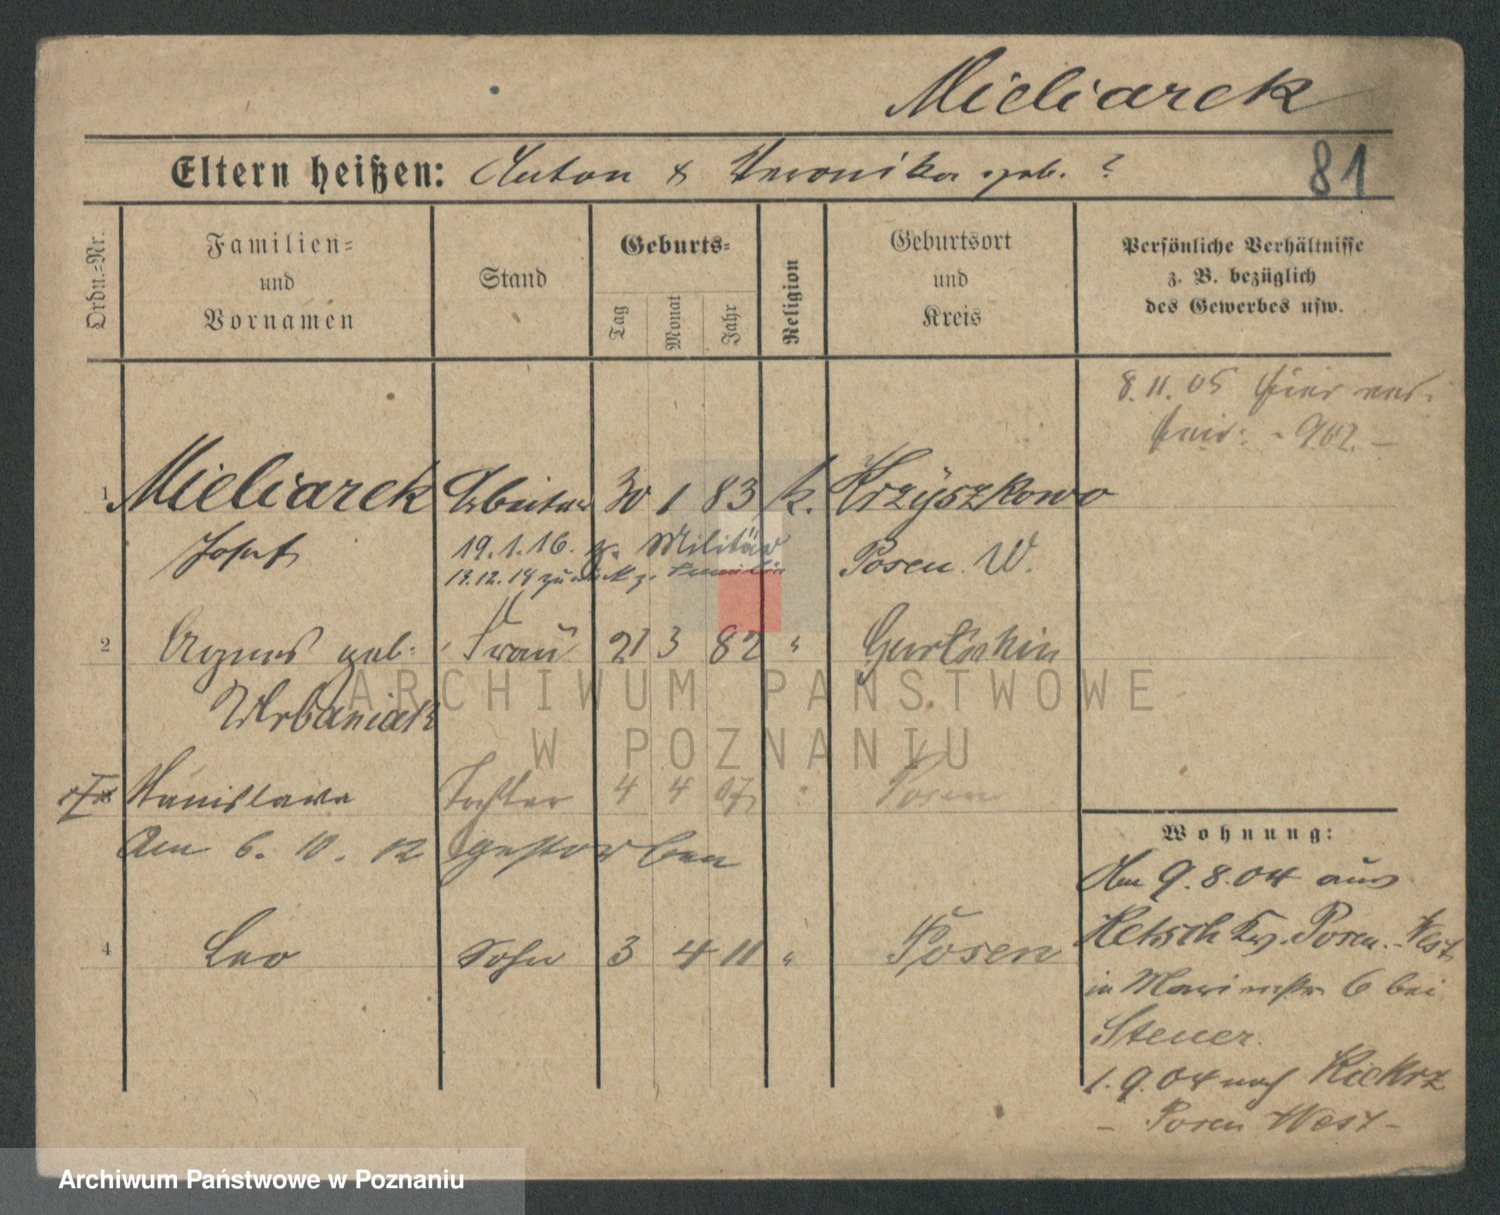 Mieliarek
Eltern heißen: Anton & Veronika geb. ?
81
Ordn.=Nr.
Familien=
und
Vornamen
Stand
Geburts=
Tag
Monat
Jahr
Religion
Geburtsort
und
Kreis
Persönliche Verhältnisse
z. B. bezüglich
des Gewerbes usw.
8. 11. 05 hier
902.
1 Mieliarek Arbeiter 30 1 83 k. Krzyszkowo
Josef 19. 1. 16. z. Militär Posen W.
13. 12. 14 zurück z. Familie
2 Agnes geb. Frau 21 3 82 "
Urbaniak
Stanislawa Tochter 4 4 07 " Posen
Am 6. 10. 12 gestorben
4 Leo Sohn 3 4 11 " Posen
Wohnung:
Am 9. 8. 04 aus
Posen-West
in 6 bei
Steuer.
1. 9. 04 nach Kiekrz
- Posen West -
ARCHIWUM PAŃSTWOWE
W POZNANIU
Archiwum Państwowe w Poznaniu